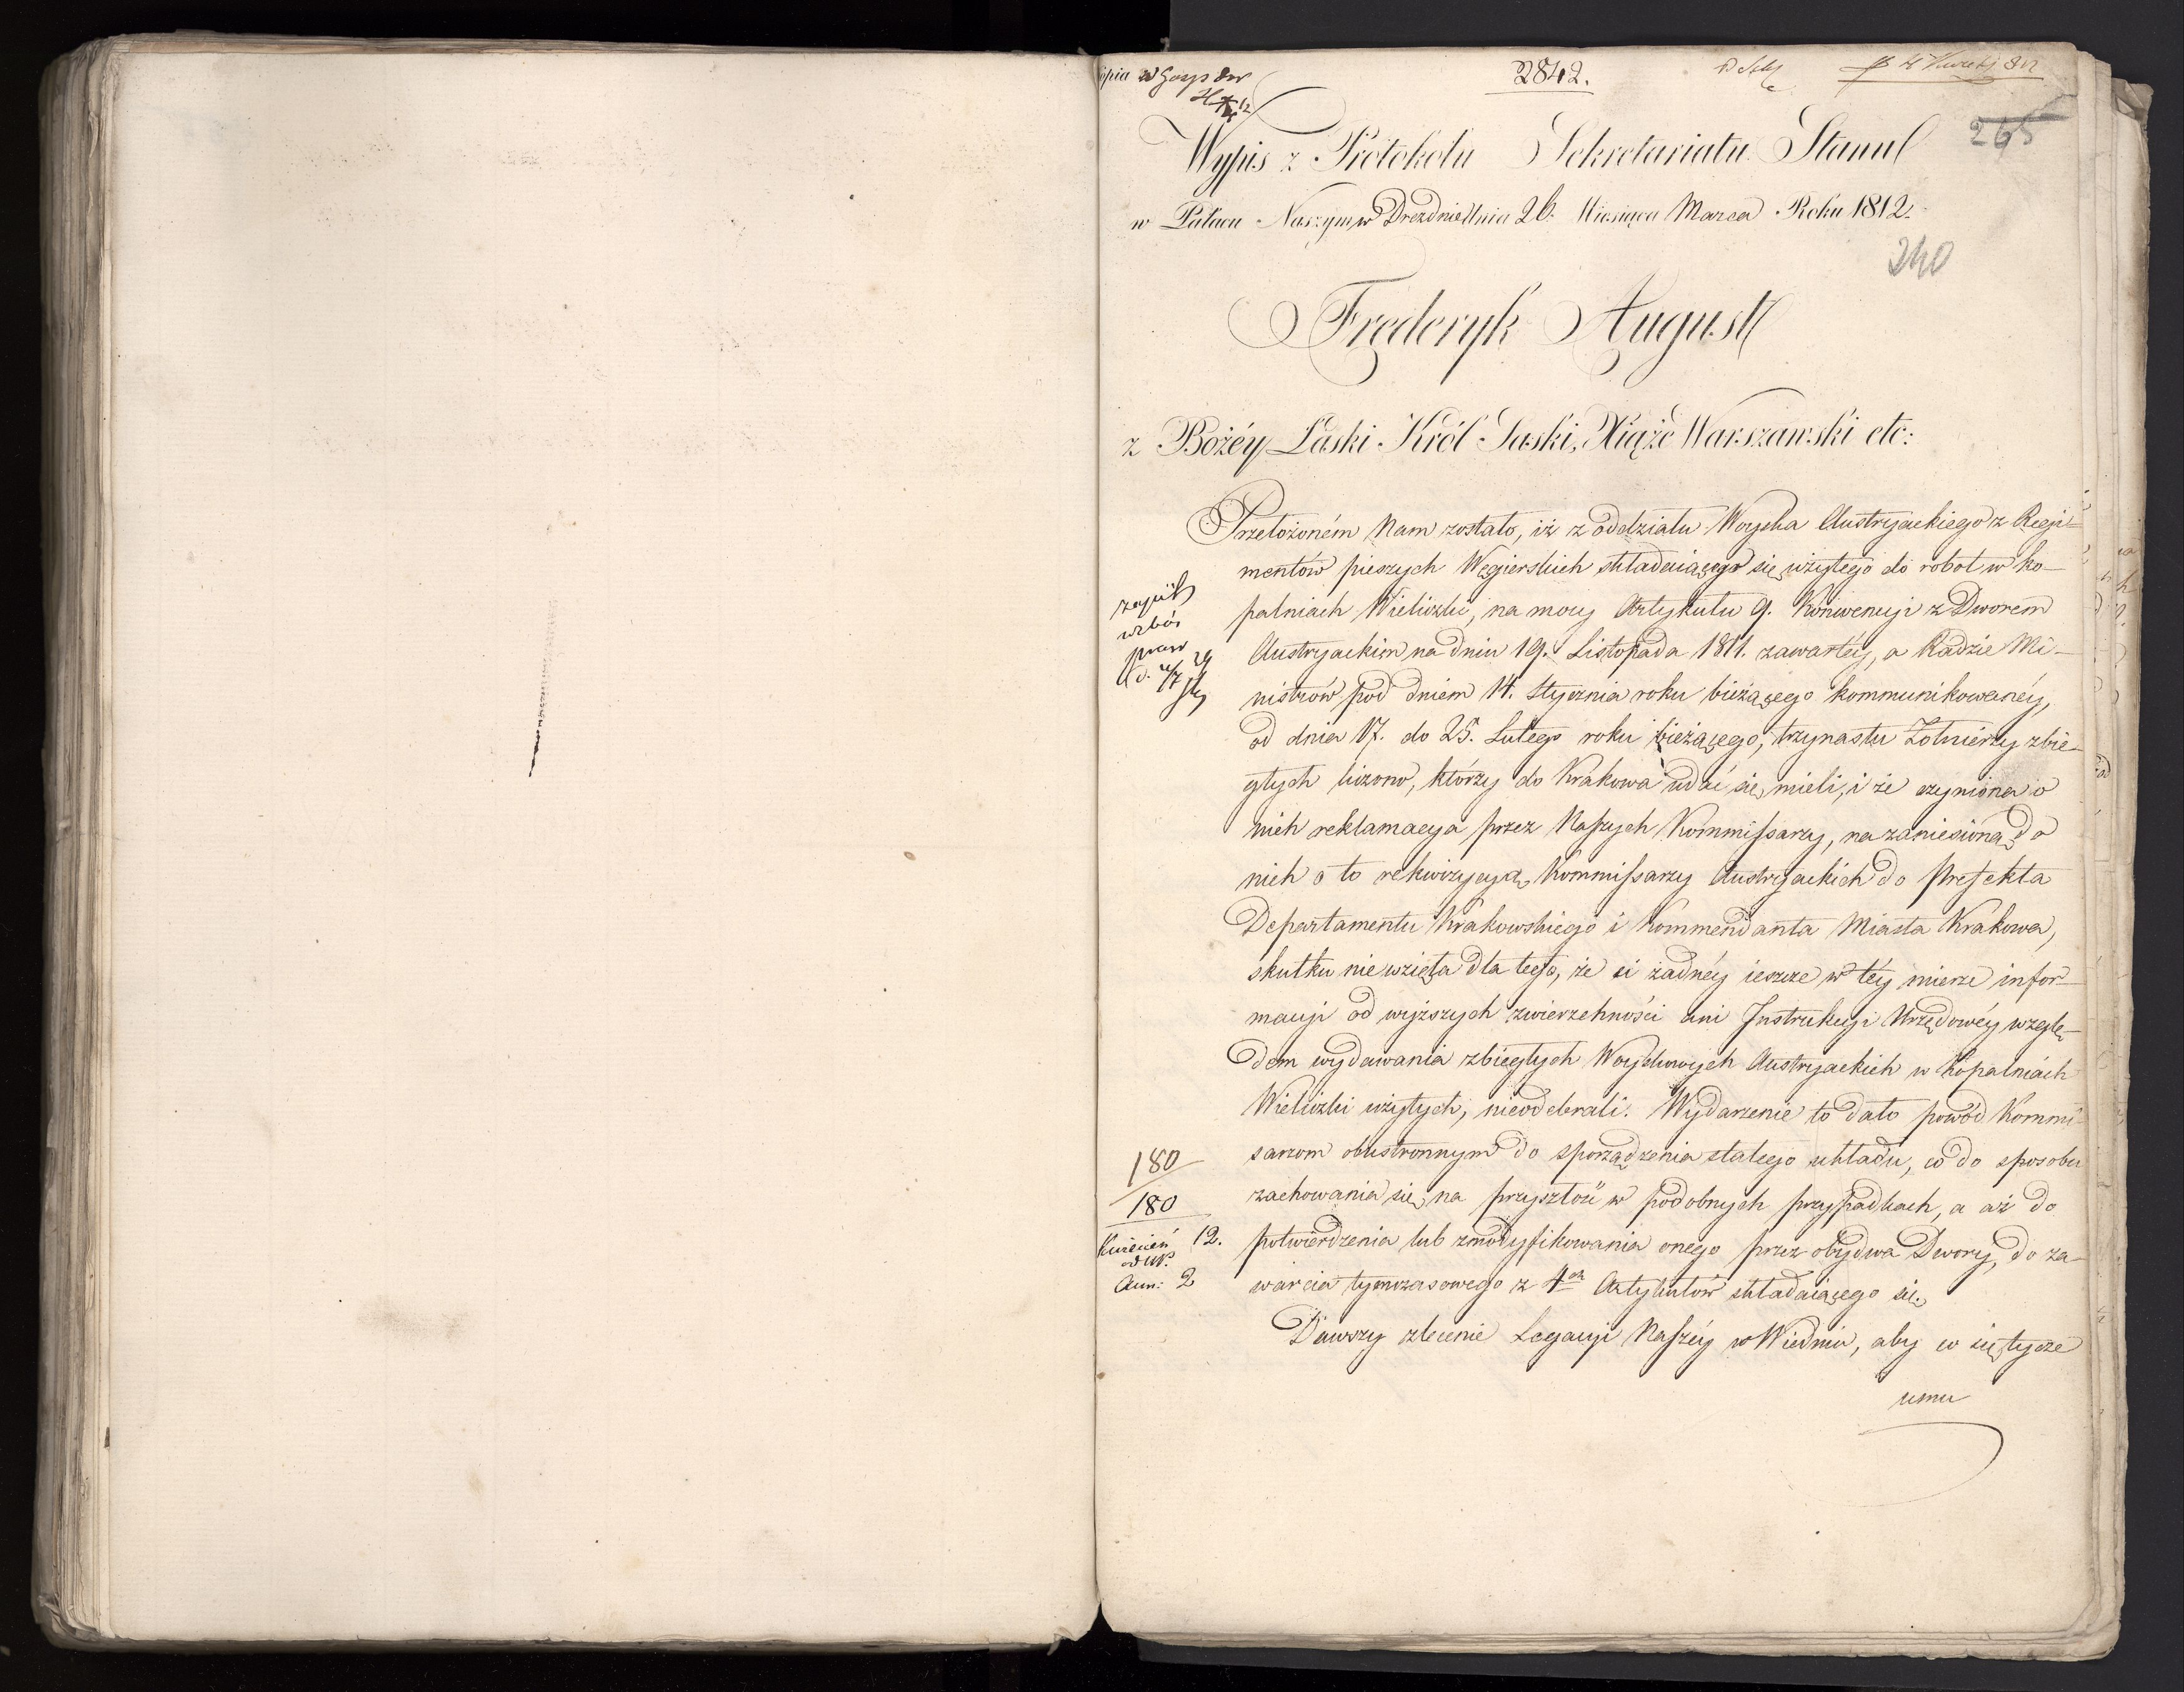 2842.
265
Wypis z Protokołu Sekretariatu Stanu
w Pałacu Naszym w Dreznie Dnia 26. Miesiąca Marca Roku 1812.
240
Frederyk August
z Bożéy Łaski Król Saski, Xiąże Warszawski etc:
Przełożoném Nam zostało, iż z oddziału Woyska Austryackiego z Regi-
mentów pieszych Węgierskich składaiącego się użytego do robot w ko-
palniach Wieliczki, na mocy Artykułu 9. Konwencyi z Dworem
Austryackim na dniu 19. Listopada 1811. zawartéy, a Radzie Mi-
nistrów pod dniem 14. Stycznia roku bieżącego kommunikowanéy,
od dnia 17. do 25. Lutego roku bieżącego, trzynastu Żołnierzy zbie-
głych liczono, którzy do Krakowa udać się mieli, i że czyniona o
nich reklamacya przez Naszych Kommissarzy, na zaniesioną do
nich o to rekwizycyą Kommissarzy Austryackich do Prefekta
Departamentu Krakowskiego i Kommendanta Miasta Krakowa,
skutku nie wzięła dla tego, że ci żadnéy ieszcze w téy mierze infor-
macyi od wyższych zwierzchności ani Instrukcyi Urzędowéy wzglę-
dem wydawania zbiegłych Woyskowych Austryackich w Kopalniach
Wieliczki użytych, nieodebrali. Wydarzenie to dało powód Kommi-
sarzom obustronnym do sporządzenia stałego układu, co do sposobu
zachowania się na przyszłość w podobnych przypadkach, a aż do
potwierdzenia lub zmodyfikowania onego przez obydwa Dwory, do za-
warcia tymczasowego z 4ch Artykułów składaiącego się.
Dawszy zlecenie Legacyi Naszéy w Wiedniu, aby co się tycze
umu
180
180
Kwiecień 12.
Ann: 2